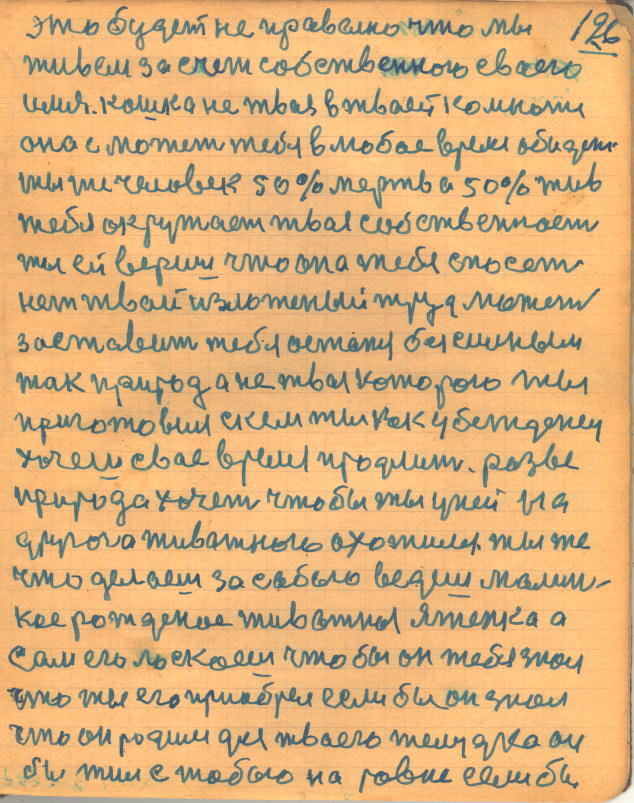 126
это будет не правелно что мы
живем за счет собственного своего
имя. кошка не твая в тваей комноти
она сможет тебя в любое время обидеть
ты же человек 50% мертв а 50% жив
тебя окружает твая собственност
ты ей вериш что она тебя спосет
нет твай изложеный труд может
заставит тебя остатся безсилным
так природа не твая которого ты
приготовил с кем ты как убежденец
хочеш свае время продлит. разве
природа хочет чтобы ты у ней на
другога животного охотился. ты же
что делаеш за собою ведеш мален-
кое рождение животныя ятенка а
сам его лоскаеш чтобы он тебя знал
что ты его приобрел если бы он знал
что он родился для тваего желудка он
бы жил с тобою на ровне если бы